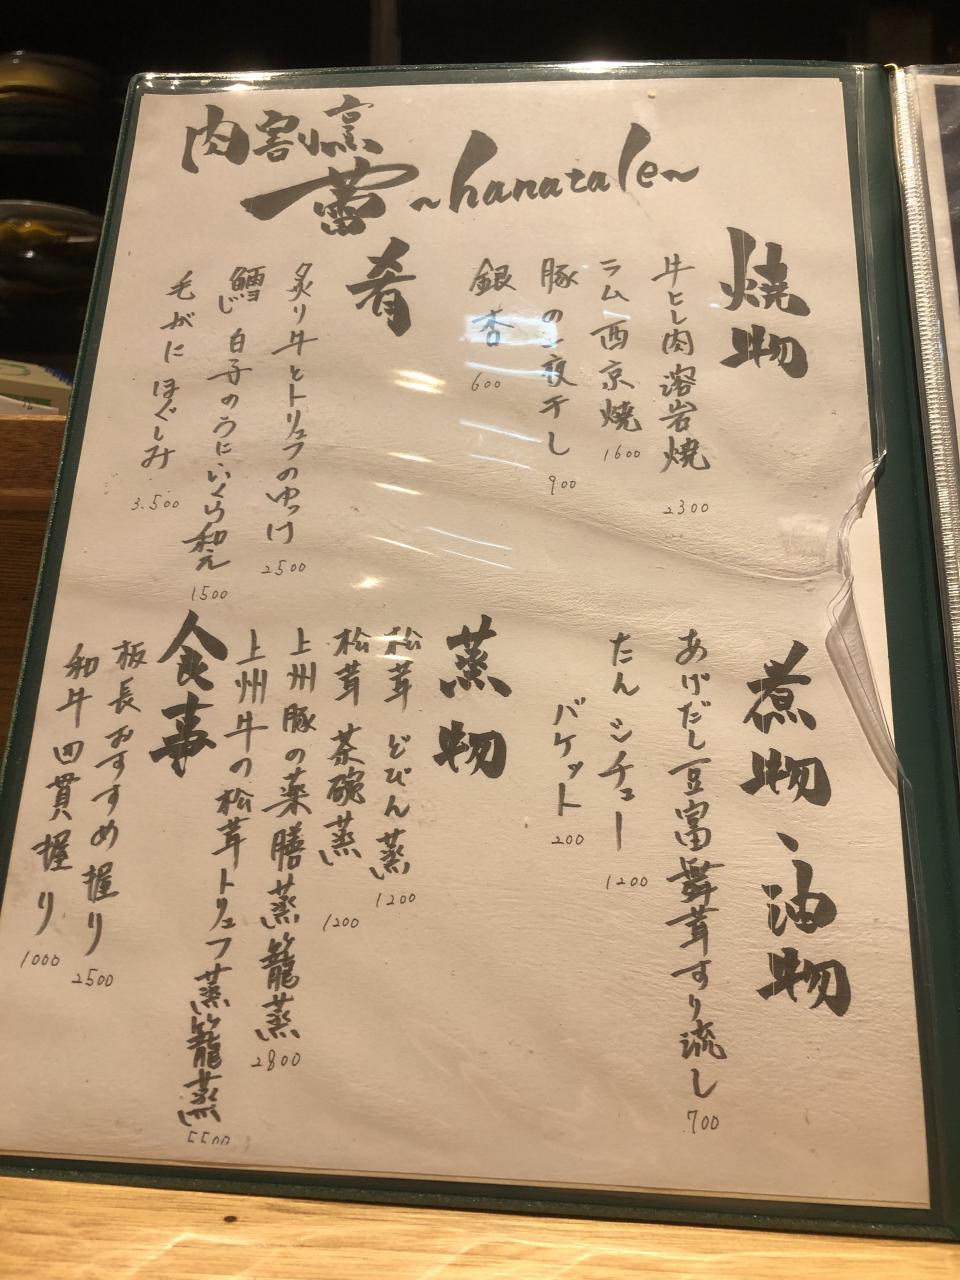 肉割烹
蕾 ~hanatale~
焼物
牛ヒレ肉 溶岩焼 2300
ラム西京焼 1600
豚の一夜干し 900
銀杏 600
肴
炙り牛とトリュフのゆっけ 2500
鱈じ 白子のうにいくら和え 1500
毛がにほぐしみ 3.500
煮物、油物
あげだし豆富舞茸すり流し 700
たんシチュー 1200
バケット 200
蒸物
松茸 どびん蒸 1200
松茸 茶碗蒸 1200
上州豚の薬膳蒸籠蒸 2800
上州牛の松茸トリュフ蒸籠蒸 5500
食事
板長おすすめ握り 2500
和牛四貫握り 1000